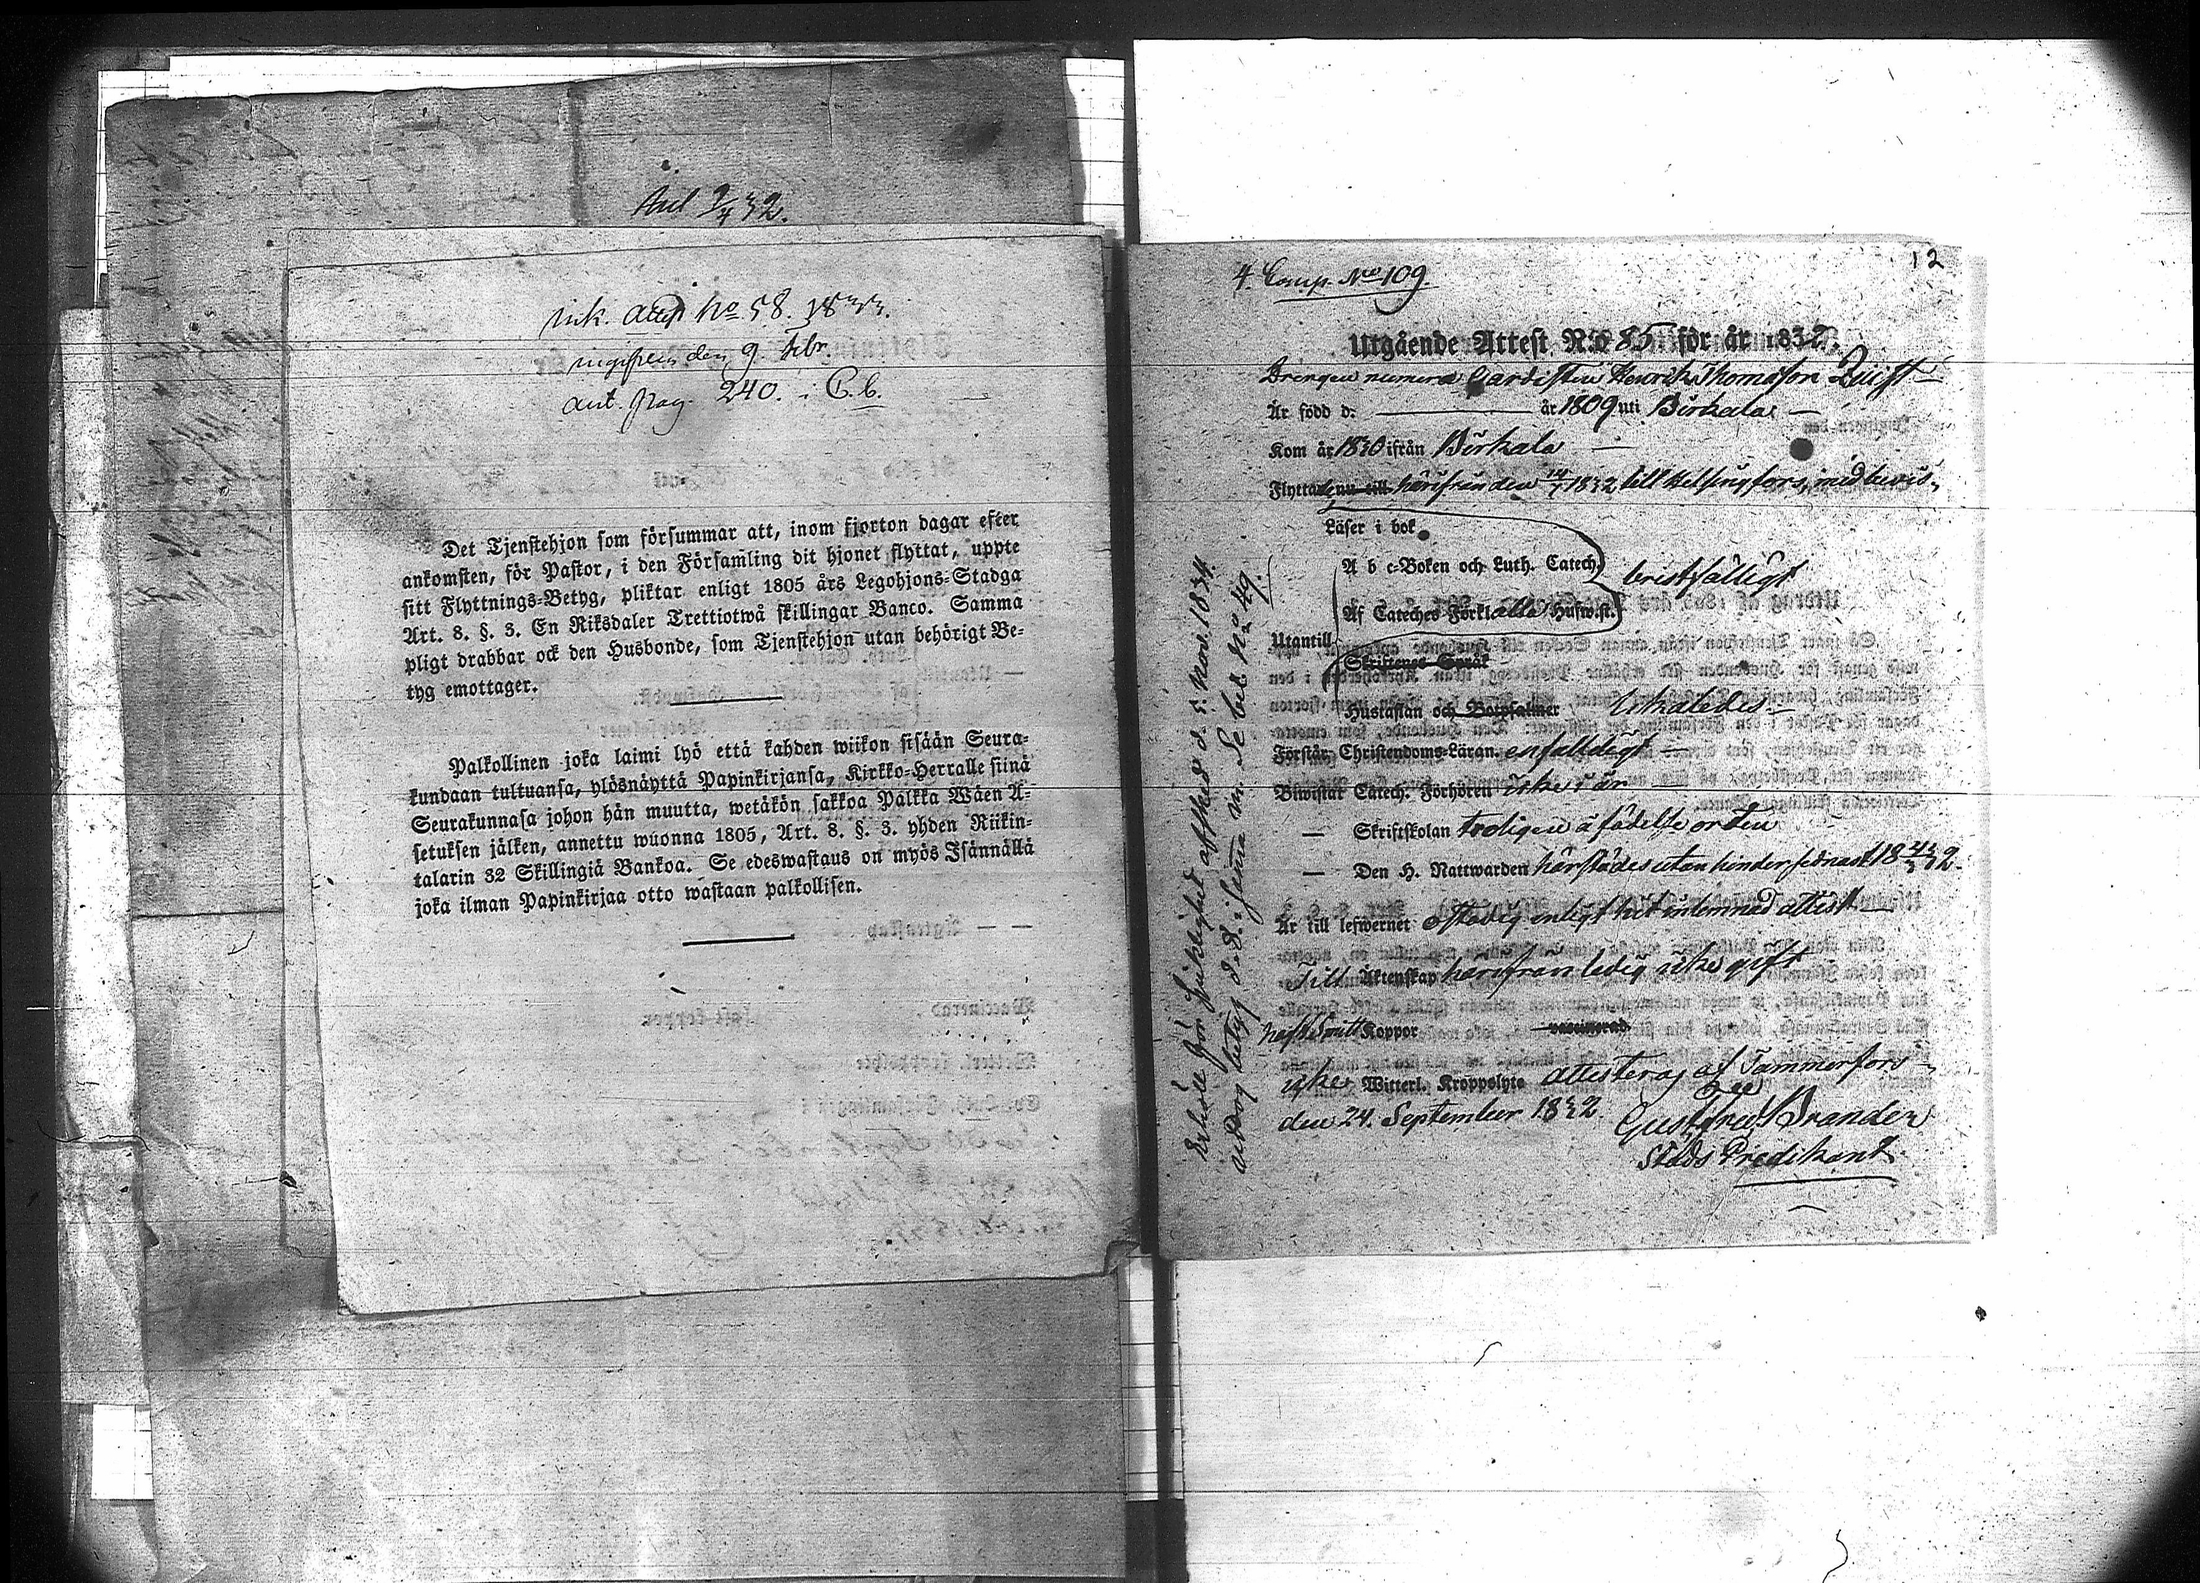 Ank 9/4 32.
ink. attest No 58. 1833.
ingifven den 9. Febr.
ant. pag. 240. i C.b.
Det Tjenstehjon som försummar att, inom fjorton dagar efter
ankomsten, för Pastor, i den Församling dit hjonet flyttat, uppte
sitt Flyttnings-Betyg, pliktar enligt 1805 års Legohjons-Stadga
Art. 8. §. 3. En Riksdaler Trettiotwå skillingar Banco. Samma
pligt drabbar ock den Husbonde, som Tjenstehjon utan behörigt Be-
tyg emottager.
Palkollinen joka laimi lyö että kahden wiikon sisään Seura-
kundaan tultuansa, ylösnäyttä Papinkirjansa, Kirkko-Herralle siinä
Seurakunnasa johon hän muutta, wetäkön sakkoa Palkka Wäen A-
setuksen jälken, annettu wuonna 1805, Art. 8. §. 3. yhden Riikin-
talarin 32 Skillingiä Bankoa. Se edeswastaus on myös Isännällä
joka ilman Papinkirjaa otto wastaan palkollisen.
12
4. Comp. No 109.
Utgående Attest No 85 för år 1832.
Drengen numera Gardisten Henrik Thomasson Quist
Är född d: år 1809 uti Birkala
Kom år 1830 ifrån Birkala
Flyttade nu till härifrån den 14/7 1832 till Helsingfors, med bevis,
Läser i bok
A b c-Boken och Luth. Catech. bristfälligt
Af Cateches Förkl alla Husw.st.
Utantill
Skriftenes Språk
Hustaflan och Botpsalmer likaledes
Förstår Christendoms-Läran enfalldigt
Biwistat Catech. Förhören icke i år
— Skriftskolan troligen å födelse orten
— Den H. Nattwarden härstädes utan hinder sednast 18 4/3 32.
Är till lefwernet ostadig enligt hit inlemnad attest
Till Äktenskap härifrån ledig icke gift
haft Smitt Koppor vaccinerad
icke Witterl. Kroppslyte attesteras af Tammerfors
den 24. September 1832.
Gust. Fred. Brander
Stads Predikant.
Erhölle för sjuklighet afsked d. 5. Novr. 1834.